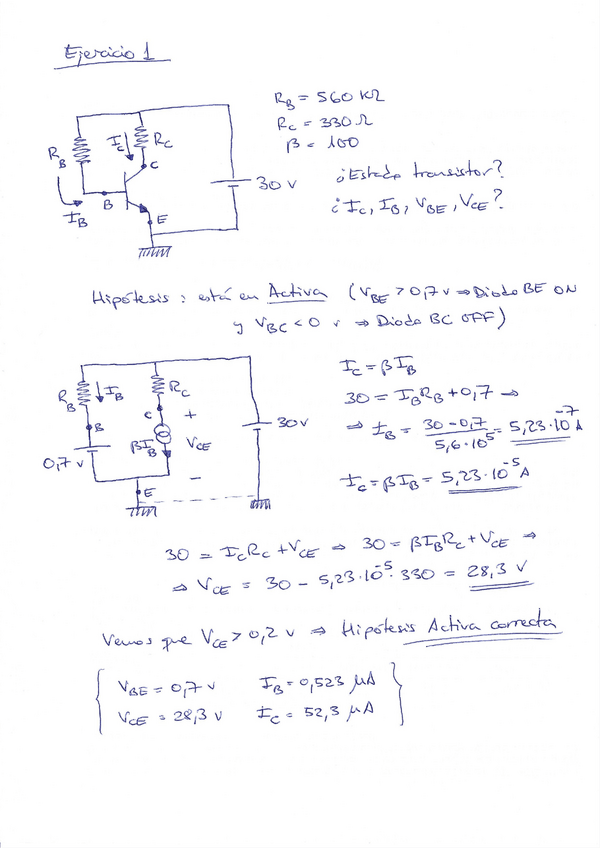 Ejercicio 1
R_B = 560 KΩ
R_C = 330 Ω
β = 100
¿Estado transistor?
¿I_C, I_B, V_BE, V_CE?
R_B
I_C
R_C
C
B
I_B
E
30 V
Hipótesis : está en Activa (V_BE > 0,7 v ⇒ Diodo BE ON
y V_BC < 0 v ⇒ Diodo BC OFF)
R_B
I_B
R_C
C
+
B
βI_B
V_CE
30 v
0,7 v
−
E
I_C = βI_B
30 = I_B R_B + 0,7 ⇒
⇒ I_B = (30 - 0,7) / (5,6·10^5) = 5,23·10^-7 A
I_C = βI_B = 5,23·10^-5 A
30 = I_C R_C + V_CE ⇒ 30 = βI_B R_C + V_CE ⇒
⇒ V_CE = 30 - 5,23·10^-5·330 = 28,3 V
Vemos que V_CE > 0,2 v ⇒ Hipótesis Activa correcta
V_BE = 0,7 v I_B = 0,523 μA
V_CE = 28,3 v I_C = 52,3 μA